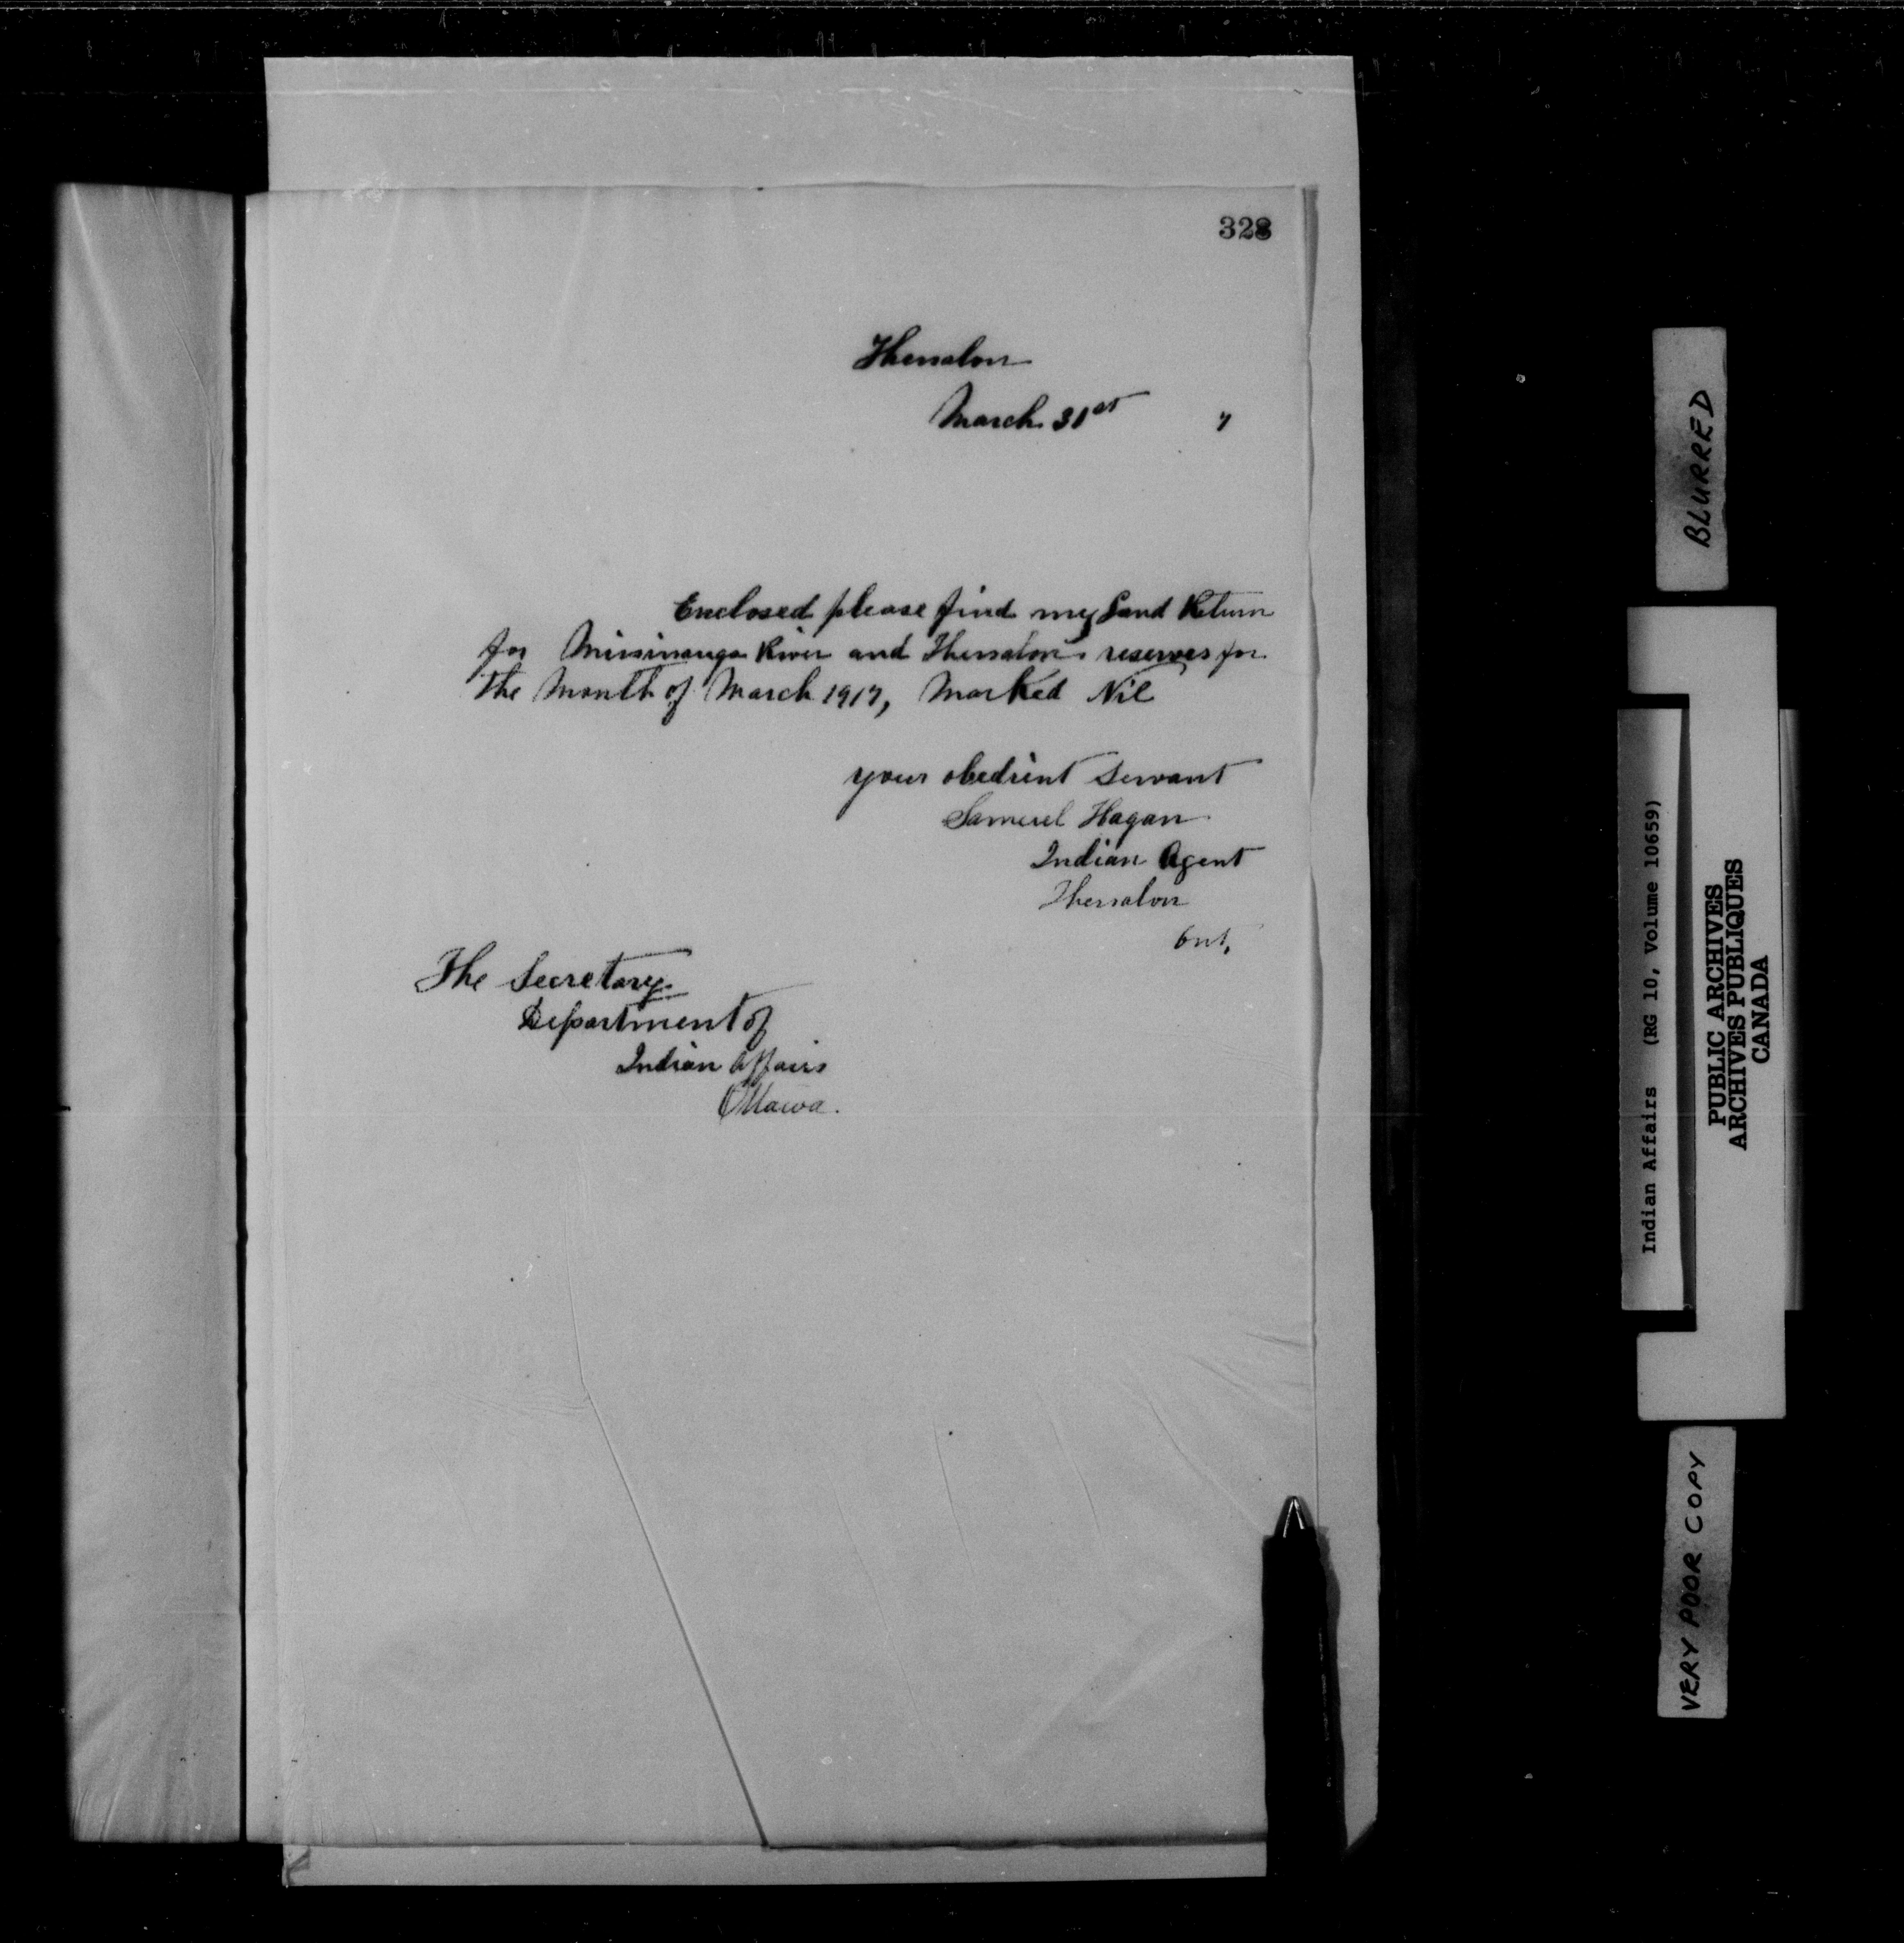 328
Thessalon
March 31st 7
Enclosed please find my Land Return
for Missinauga River and Thessalon reserves for
the Month of March 1917, Marked Nil
your obedient servant
Samuel Hagan
Indian Agent
Thessalon
Ont,
The Secretary
Department of
Indian Affairs
Ottawa.
BLURRED
Indian Affairs (RG 10, Volume 10659)
PUBLIC ARCHIVES
ARCHIVES PUBLIQUES
CANADA
VERY POOR COPY